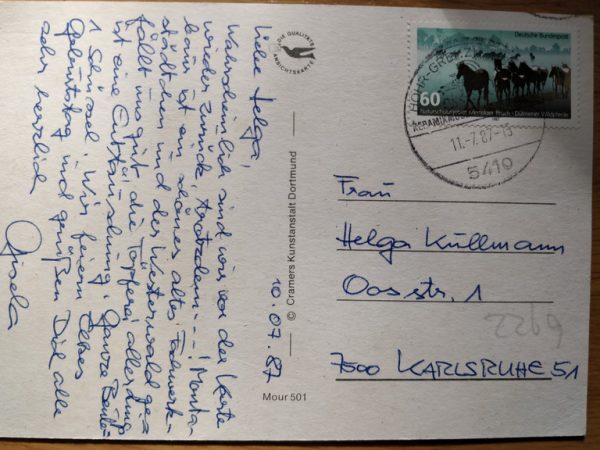 10.07.87
Liebe Helga,
wahrscheinlich sind wir vor der Karte
wieder zurück, trotzdem --! Monta-
baur ist ein schönes altes Fachwerk-
städtchen und der Westerwald ge-
fällt uns gut, die Töpferei allerdings
ist eine Enttäuschung. Ganze Beute:
1 Schüssel. Wir feiern Elkes
Geburtstag und grüßen Dich alle
sehr herzlich
Gisela
DIE QUALITÄTS
ANSICHTSKARTE
© Cramers Kunstanstalt Dortmund
Mour 501
Deutsche Bundespost
60
Naturschutzgebiet Merfelder Bruch · Dülmener Wildpferde
HÖHR-GRENZ
11.-7.87-13
5410
Frau
Helga Küllmann
Oosstr. 1
2269
7500 KARLSRUHE 51